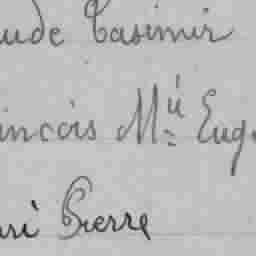 aude Casimir
ançois M.ie Eug
nri Pierre